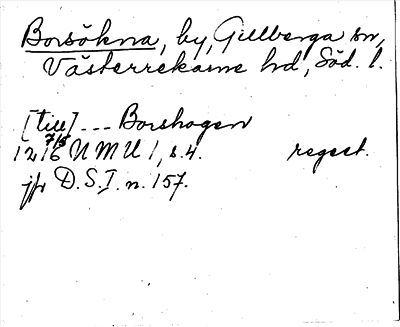 Borsökna, by, Gillberga sn,
Västerrekarne hd, Söd. l.
[till] --- Borshogen
7/5
1216 U M U 1, s. 4. regest.
jfr D. S. I. n. 157.